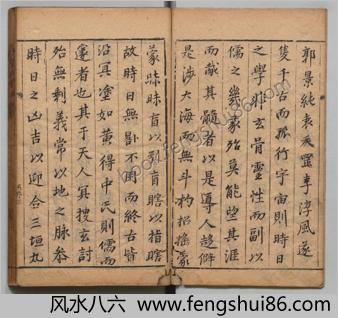 郭景純袁天罡李淳風遂
隻千古而孤行宇宙則時日
之學非玄骨靈性而副以
儒之幾豪殆莫能望其涯
而敲其髓者以是導人趍僻
是涉大海而無斗杓招搖豪
蒙昧昧盲以亂盲瞎以指瞎
故時日無影不圖而終古皆
沿冥塗如黃得中氏則儒而
邃者也其于天人冥搜玄討
殆無剩義常以地之脉參
時日之凶吉以迎合三垣九
风水八六：www.fengshui86.com